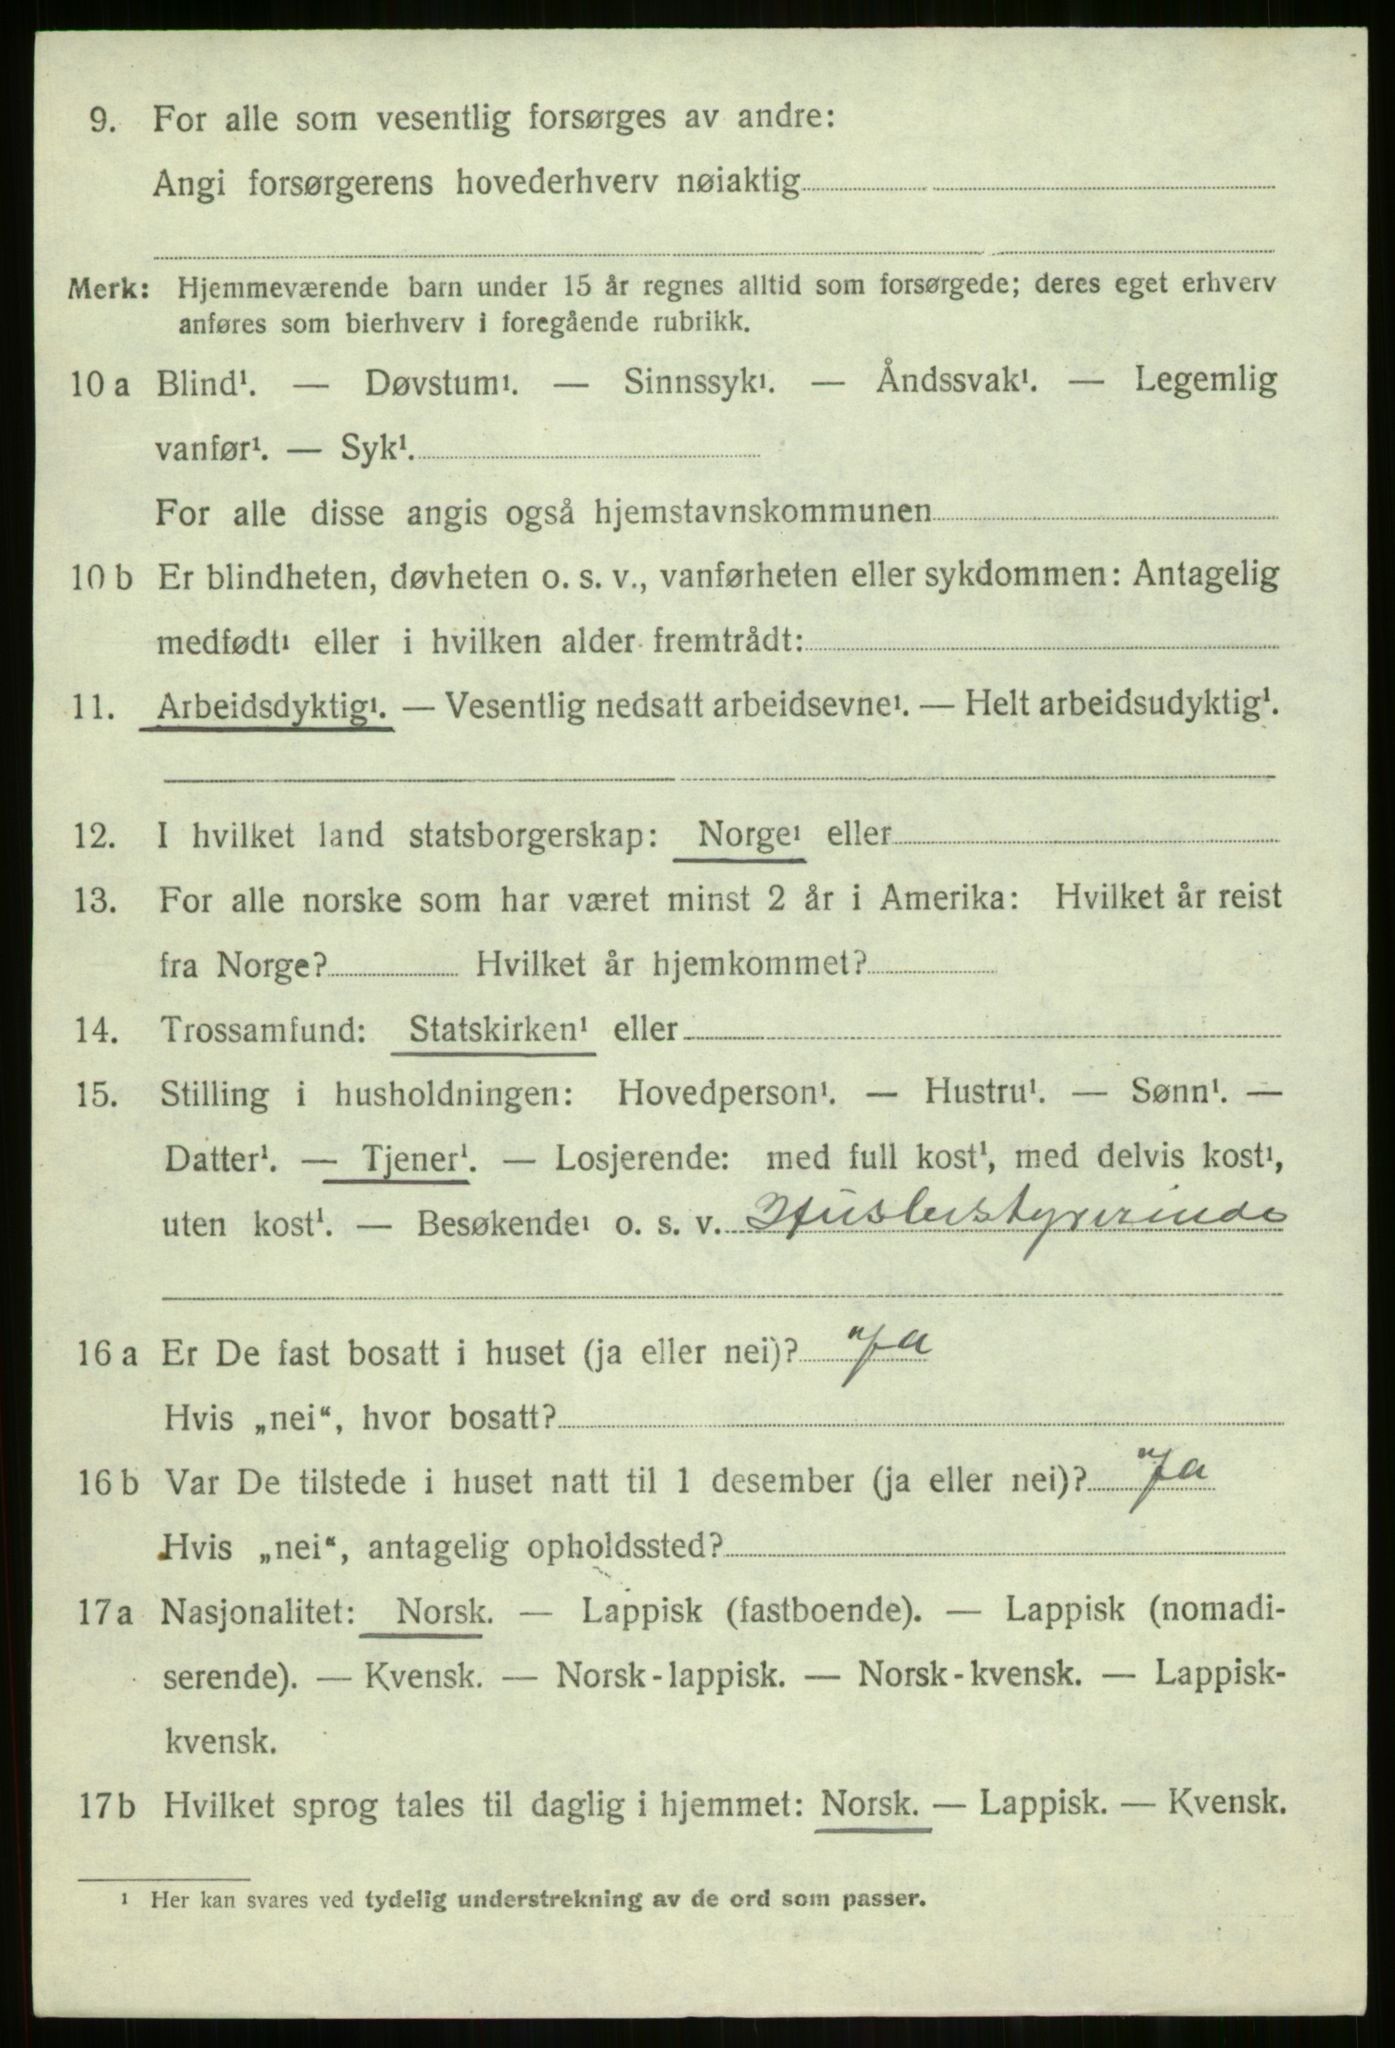 9. For alle som vesentlig forsørges av andre:
Angi forsørgerens hovederhverv nøiaktig
Merk: Hjemmeværende barn under 15 år regnes alltid som forsørgede; deres eget erhverv
anføres som bierhverv i foregående rubrikk.
10 a Blind¹. — Døvstum¹. — Sinnssyk¹. — Åndssvak¹. — Legemlig
vanfør¹. — Syk¹.
For alle disse angis også hjemstavnskommunen
10 b Er blindheten, døvheten o. s. v., vanførheten eller sykdommen: Antagelig
medfødt¹ eller i hvilken alder fremtrådt:
11. Arbeidsdyktig¹. — Vesentlig nedsatt arbeidsevne¹. — Helt arbeidsudyktig¹.
12. I hvilket land statsborgerskap: Norge¹ eller
13. For alle norske som har været minst 2 år i Amerika: Hvilket år reist
fra Norge? Hvilket år hjemkommet?
14. Trossamfund: Statskirken¹ eller
15. Stilling i husholdningen: Hovedperson¹. — Hustru¹. — Sønn¹. —
Datter¹. — Tjener¹. — Losjerende: med full kost¹, med delvis kost¹,
uten kost¹. — Besøkende¹ o. s. v. Husbestyrerinde
16 a Er De fast bosatt i huset (ja eller nei)? Ja
Hvis „nei“, hvor bosatt?
16 b Var De tilstede i huset natt til 1 desember (ja eller nei)? Ja
Hvis „nei“, antagelig opholdssted?
17 a Nasjonalitet: Norsk. — Lappisk (fastboende). — Lappisk (nomadi-
serende). — Kvensk. — Norsk-lappisk. — Norsk-kvensk. — Lappisk-
kvensk.
17 b Hvilket sprog tales til daglig i hjemmet: Norsk. — Lappisk. — Kvensk.
¹ Her kan svares ved tydelig understrekning av de ord som passer.